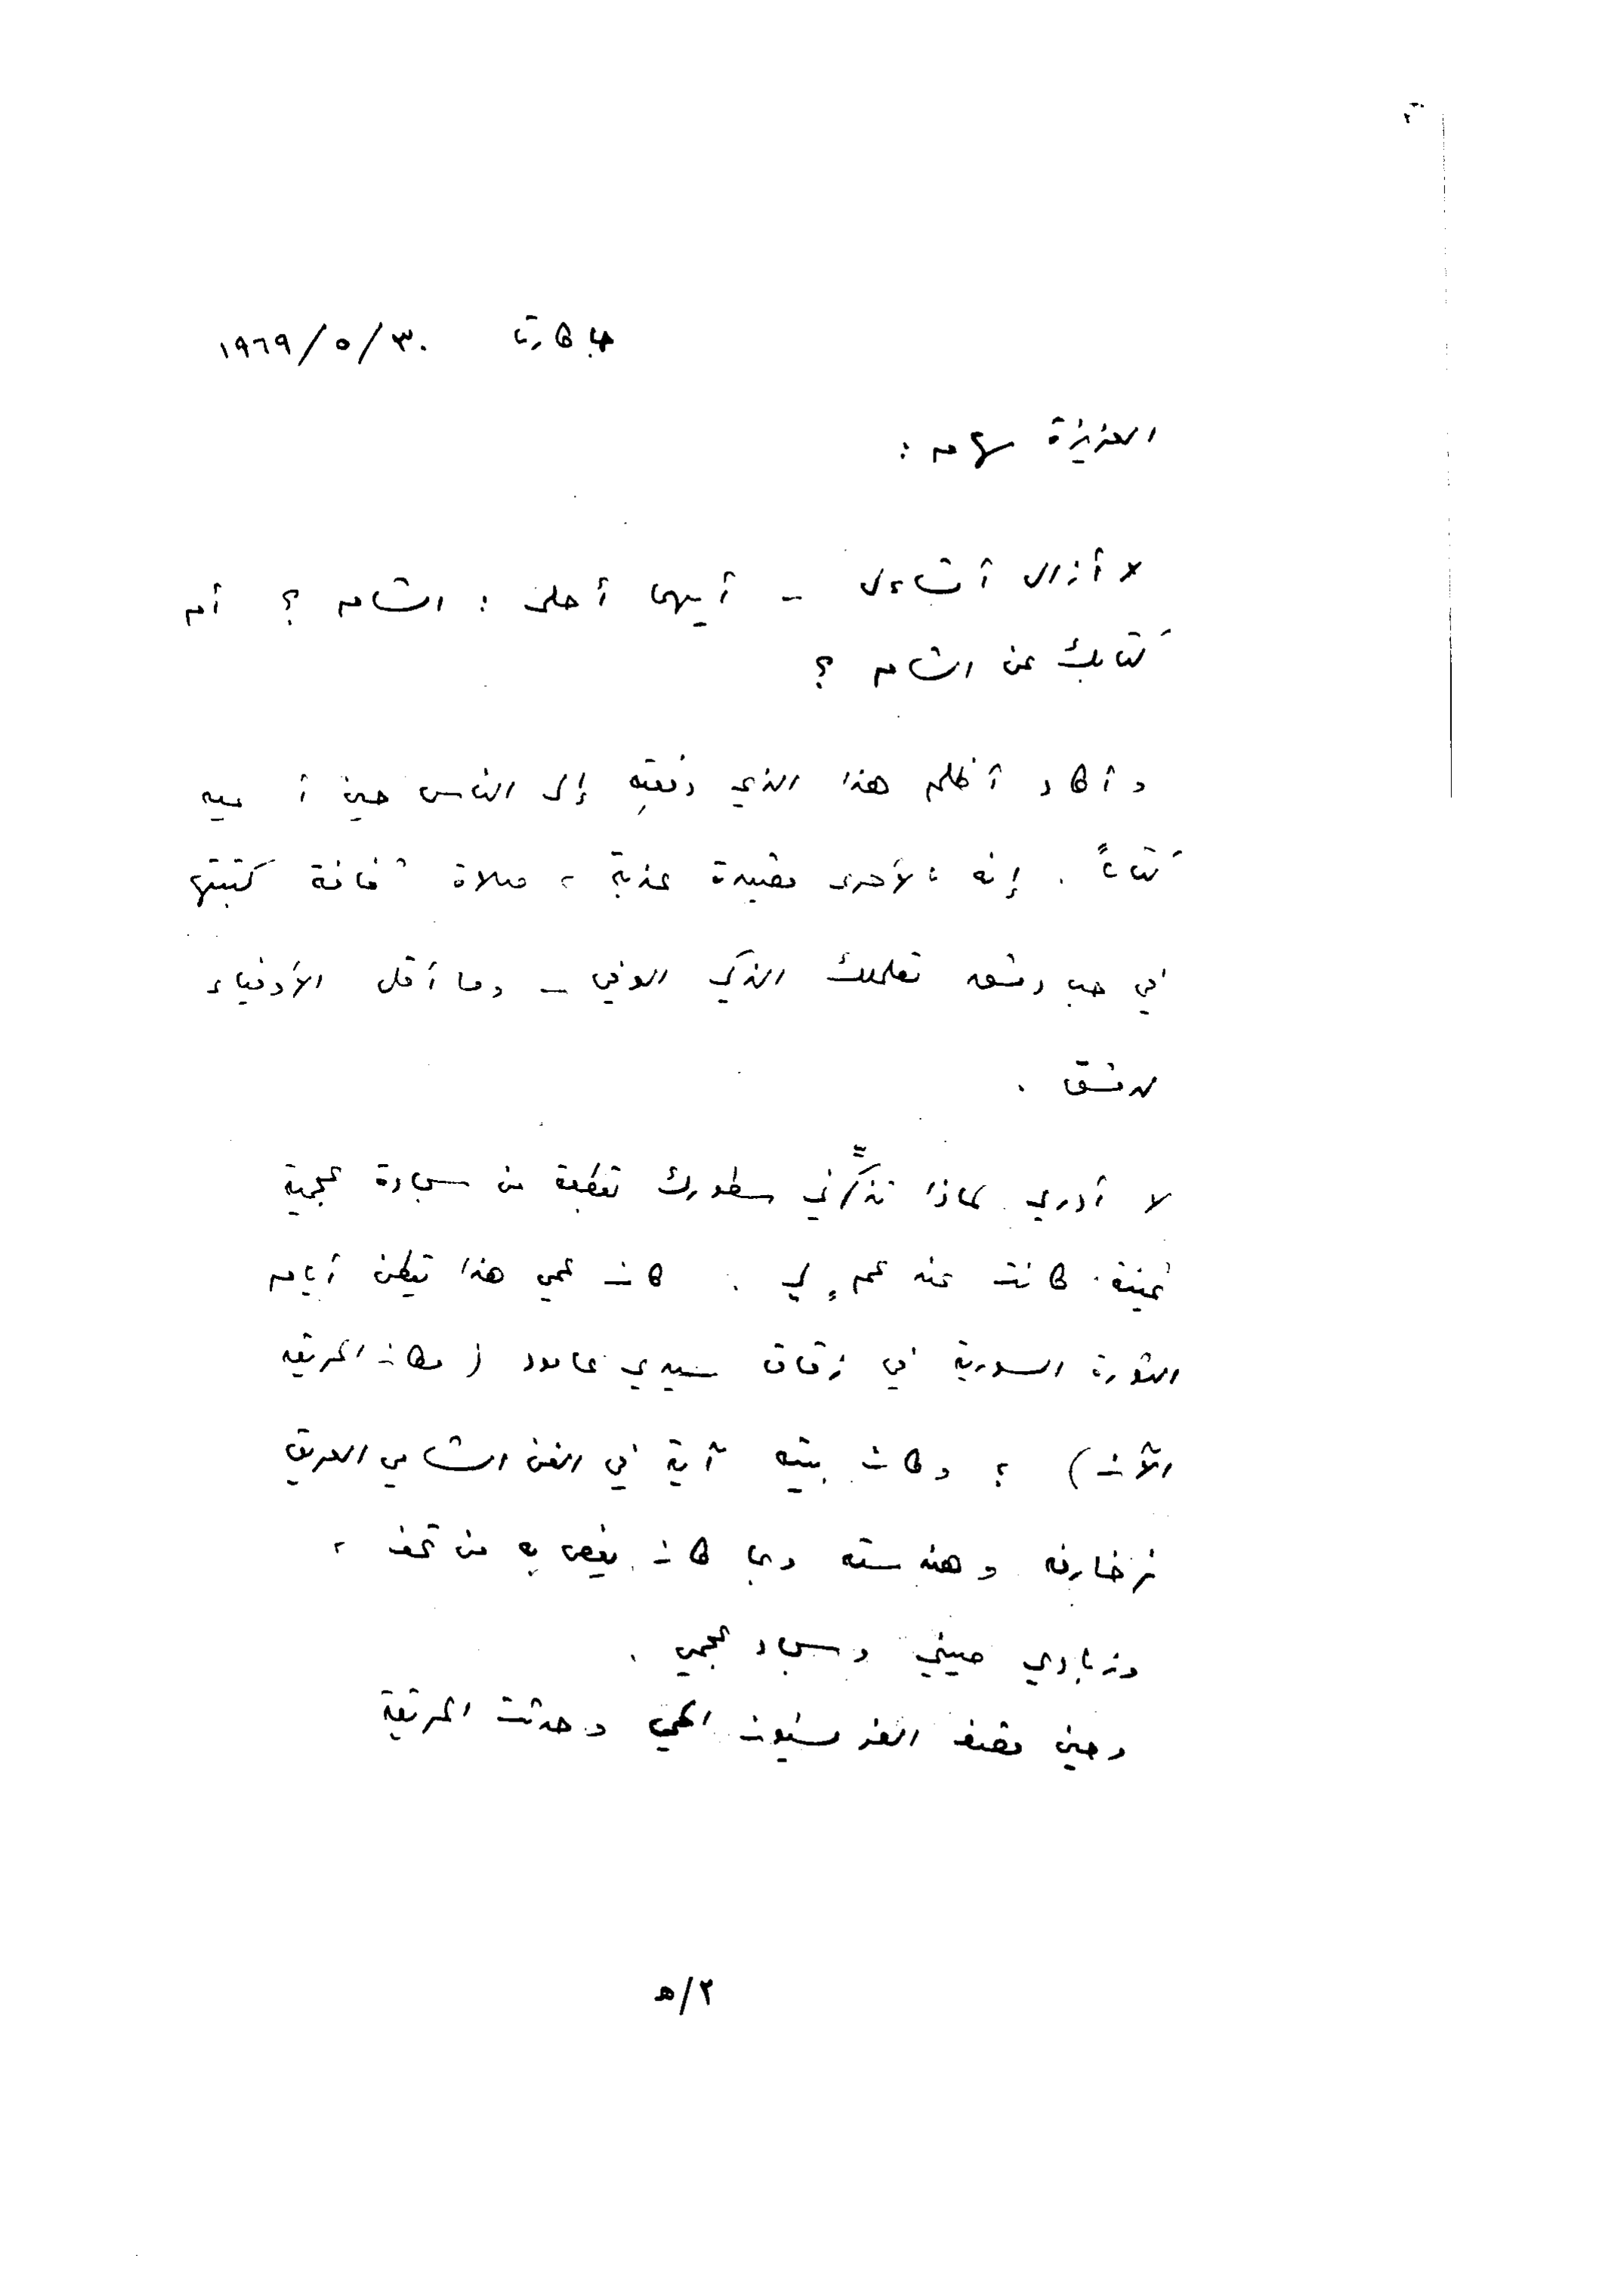 جاكارتا ٣٠/٥/١٩٦٩
العزيزة سهام :
لا أزال أتساءل - أيهما أحلى : الشام ؟ أم
كتابك عن الشام ؟
وأكاد أظلم هذا الذي دفعتِه إلى الناس حين أسميه
كتاباً . إنه بالأحرى قصيدة عذبة ، صلاة شفافة كتبتها
في حب دمشق بقلمك الذكي الوفي - وما أقل الأوفياء
لدمشق .
لا أدري لماذا تذكّرني سطورك بقطعة من سجادة عجمية
ثمينة كانت عند عمٍ لي . كان عمي هذا يقطن أيام
الثورة السورية في زقاق سيدي عامود ( مكان الحريقة
الآن ) ؛ وكان بيته آية في الفن الشامي العريق
بزخارفه وهندسته وبما كان يغص به من تحف ،
وزبادي صيني وسجاد عجمي .
وحين قصف الفرنسيون الحي وحدثت الحريقة
٢/هـ